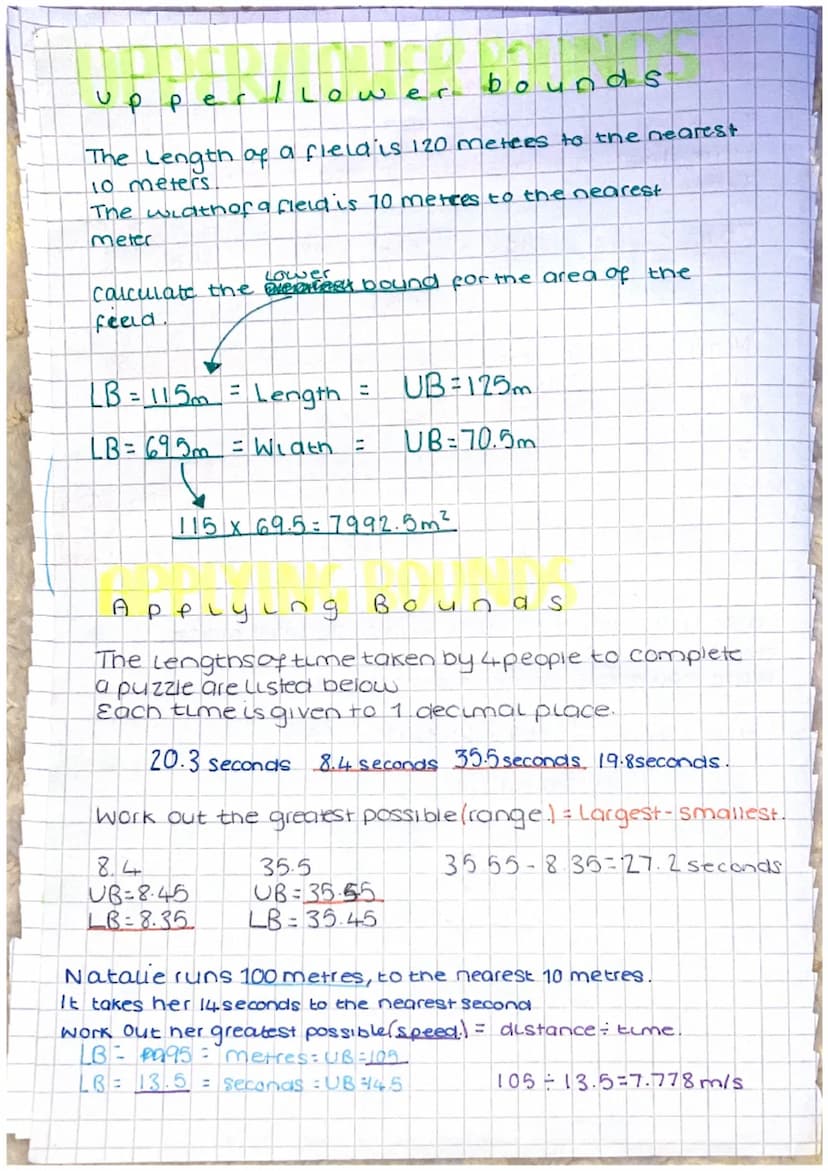 UPPER/LOWER BOUNDS
Upper/Lower bounds
The Length of a field is 120 metres to the nearest
10 meters.
The width of a field is 70 metres to the nearest
meter
Lower
calculate the bound for the area of the
field.
LB = 115m = Length = UB = 125m
LB = 69.5m = Width = UB = 70.5m
115 x 69.5 = 7992.5m²
APPLYING BOUNDS
Applying Bounds
The lengths of time taken by 4 people to complete
a puzzle are listed below
Each time is given to 1 decimal place.
20.3 seconds 8.4 seconds 35.5 seconds 19.8 seconds.
Work out the greatest possible (range.) = Largest - smallest.
8.4 35.5 35.55 - 8.35 = 27.2 seconds
UB = 8.45 UB = 35.55
LB = 8.35 LB = 35.45
Natalie runs 100 metres, to the nearest 10 metres.
It takes her 14 seconds to the nearest second
Work out her greatest possible (speed.) = distance ÷ time.
LB = 95 = metres = UB = 105
LB = 13.5 = seconds = UB = 14.5 105 ÷ 13.5 = 7.778 m/s